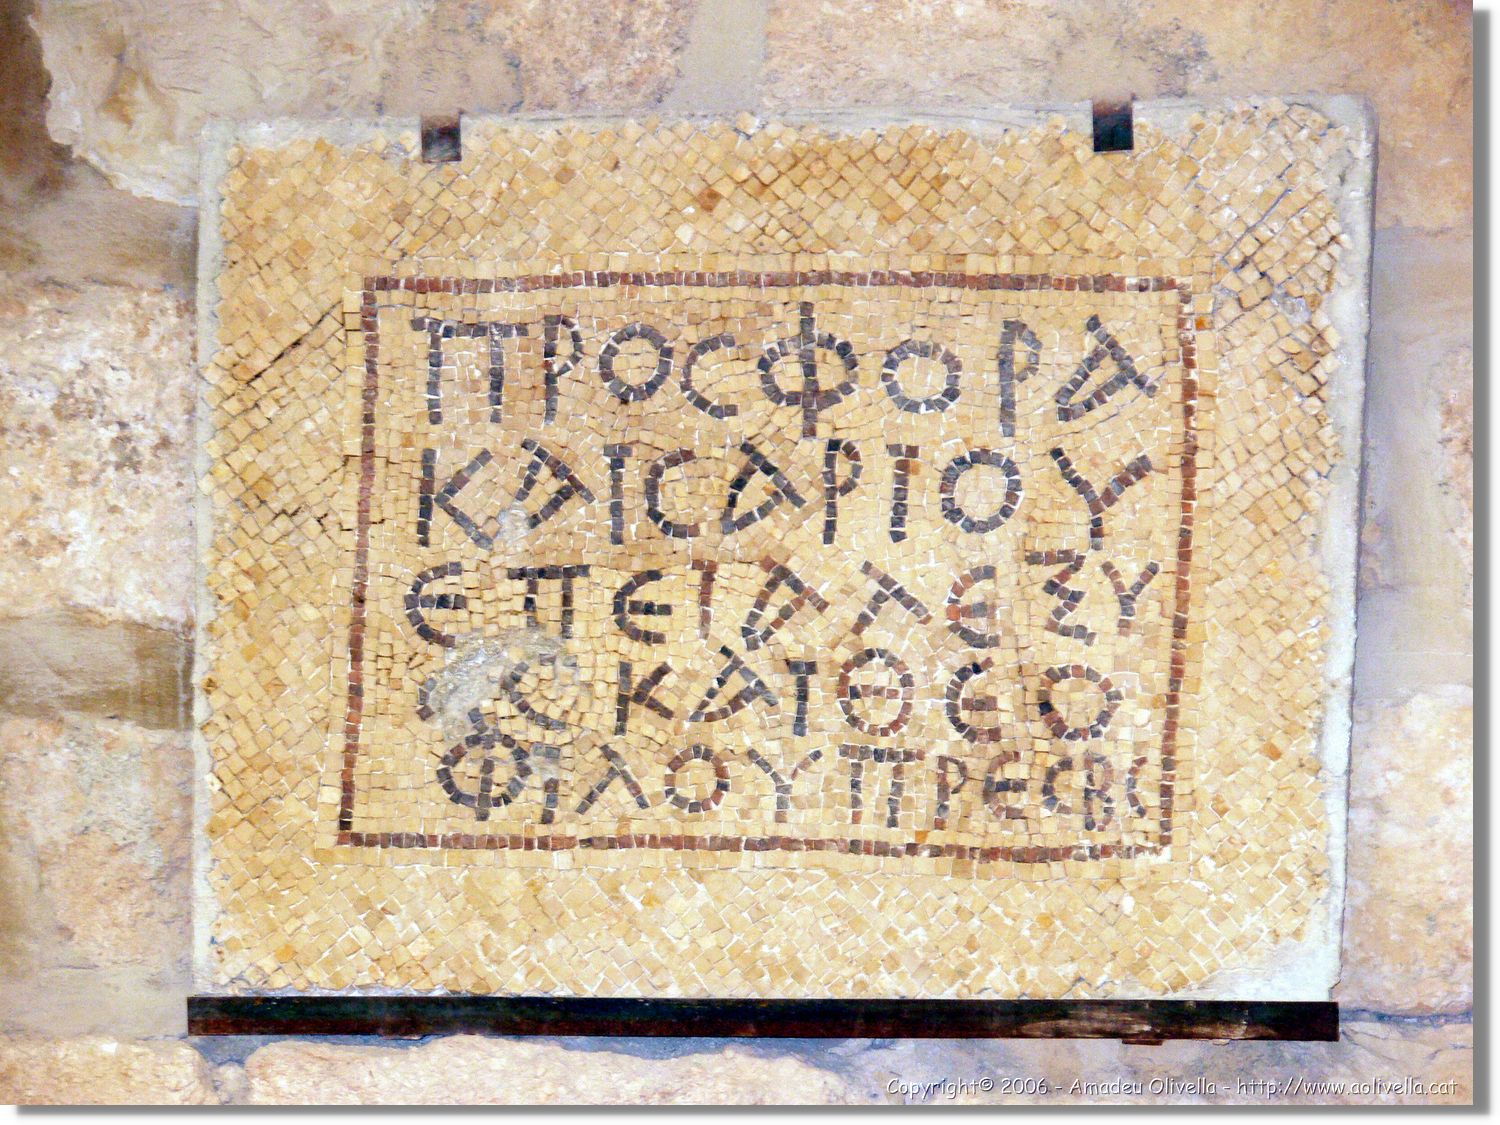 ΠΡΟϹΦΟΡΑ
ΚΑΙϹΑΡΙΟΥ
ΕΠΕΙΑΤΕΞΥ
Ϲ ΚΑΙΘΕΟ
ΦΙΛΟΥΠΡΕϹΒϹ
Copyright© 2006 - Amadeu Olivella - http://www.aolivella.cat